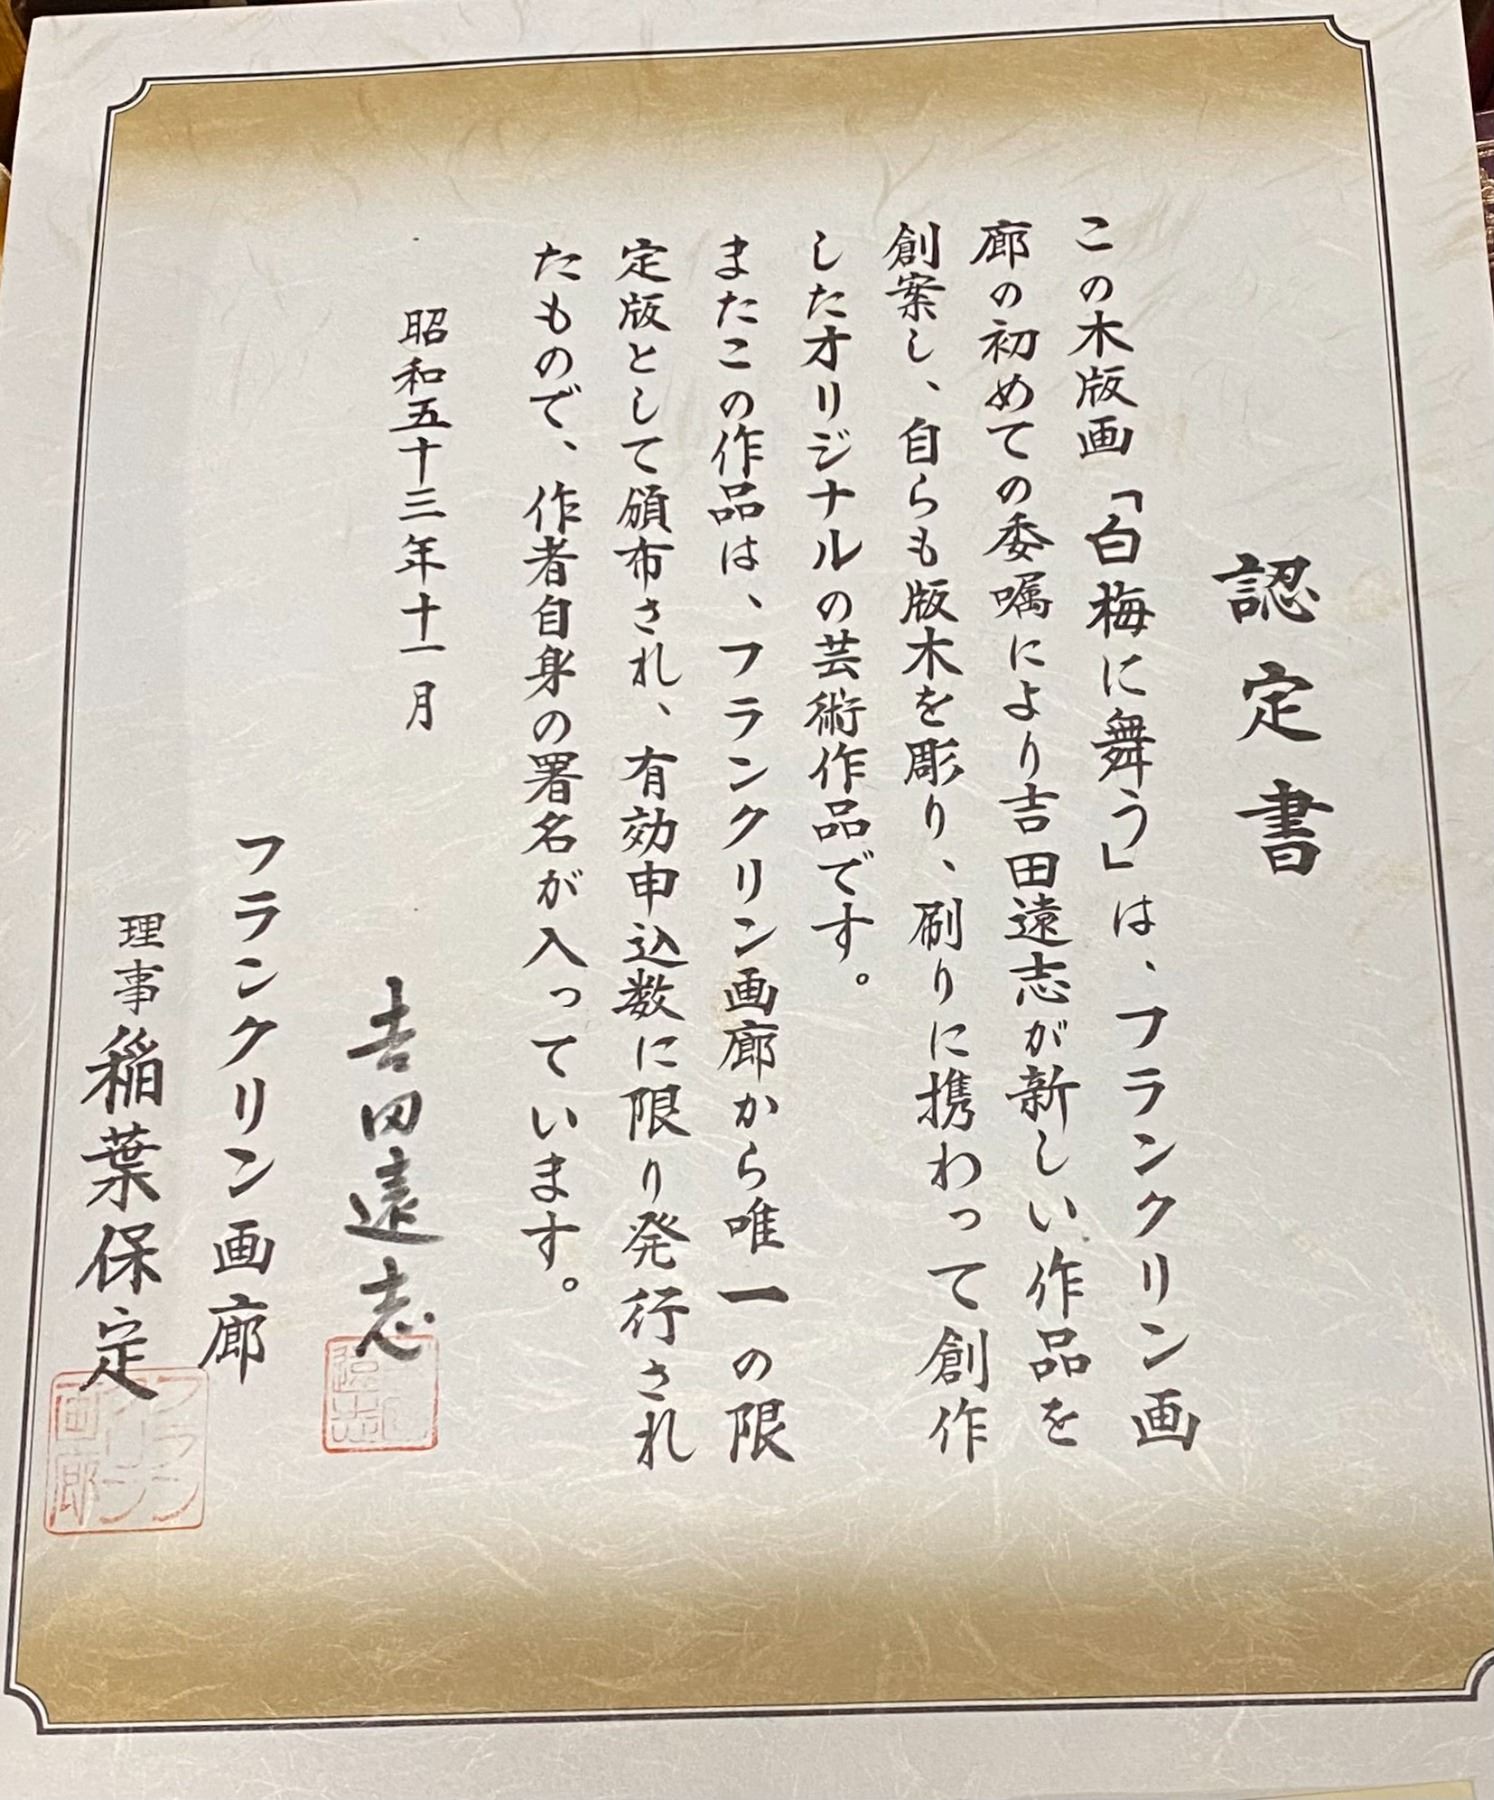 認定書
この木版画「白梅に舞う」は、フランクリン画
廊の初めての委嘱により吉田遠志が新しい作品を
創案し、自らも版木を彫り、刷りに携わって創作
したオリジナルの芸術作品です。
またこの作品は、フランクリン画廊から唯一の限
定版として頒布され、有効申込数に限り発行され
たもので、作者自身の署名が入っています。
昭和五十三年十一月
吉田遠志
フランクリン画廊
理事 稲葉保定